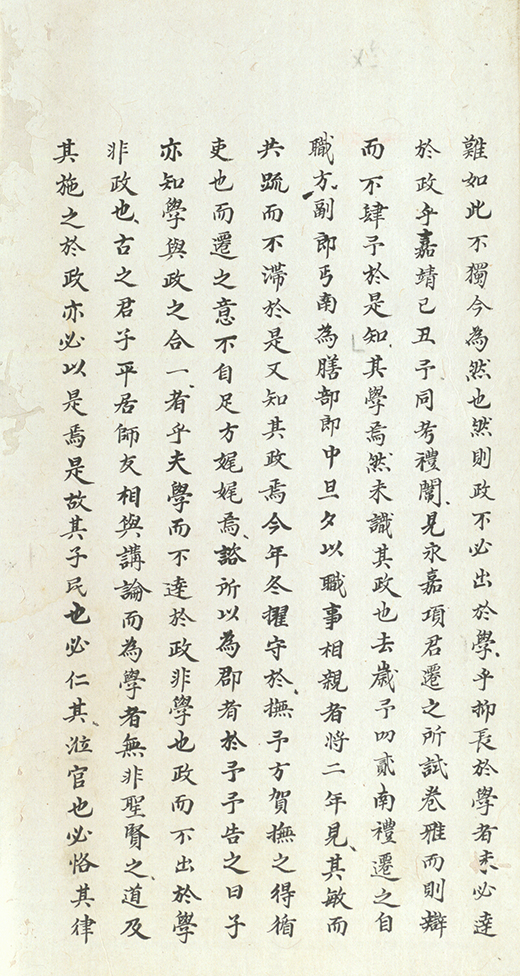 難如此不獨今為然也然則政不必出於學乎抑長於學者未必達
於政乎嘉靖己丑予同考禮闈見永嘉項君遷之所試卷雅而則辯
而不肆予於是知其學焉然未識其政也去歲予叨貳南禮遷之自
職方副郎丐南為膳部郎中旦夕以職事相親者將二年見其敏而
共疏而不滯於是又知其政焉今年冬擢守於撫予方賀撫之得循
吏也而遷之意不自足方娓娓焉諮所以為郡者於予予告之曰子
亦知學與政之合一者乎夫學而不達於政非學也政而不出於學
非政也古之君子平居師友相與講論而為學者無非聖賢之道及
其施之於政亦必以是焉是故其子民也必仁其涖官也必恪其律